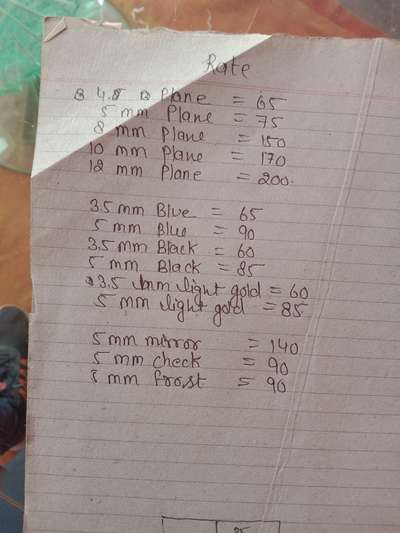 Rate
4.8 Plane = 65
5 mm Plane = 75
8 mm Plane = 150
10 mm Plane = 170
12 mm Plane = 200
3.5 mm Blue = 65
5 mm Blue = 90
3.5 mm Black = 60
5 mm Black = 85
3.5 mm light gold = 60
5 mm light gold = 85
5 mm mirror = 140
5 mm check = 90
5 mm frost = 90